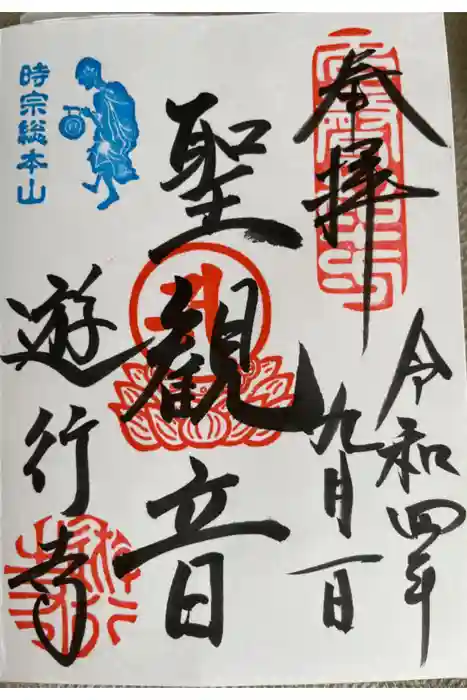 奉拝
令和四年
九月一日
聖観音
時宗総本山
遊行寺